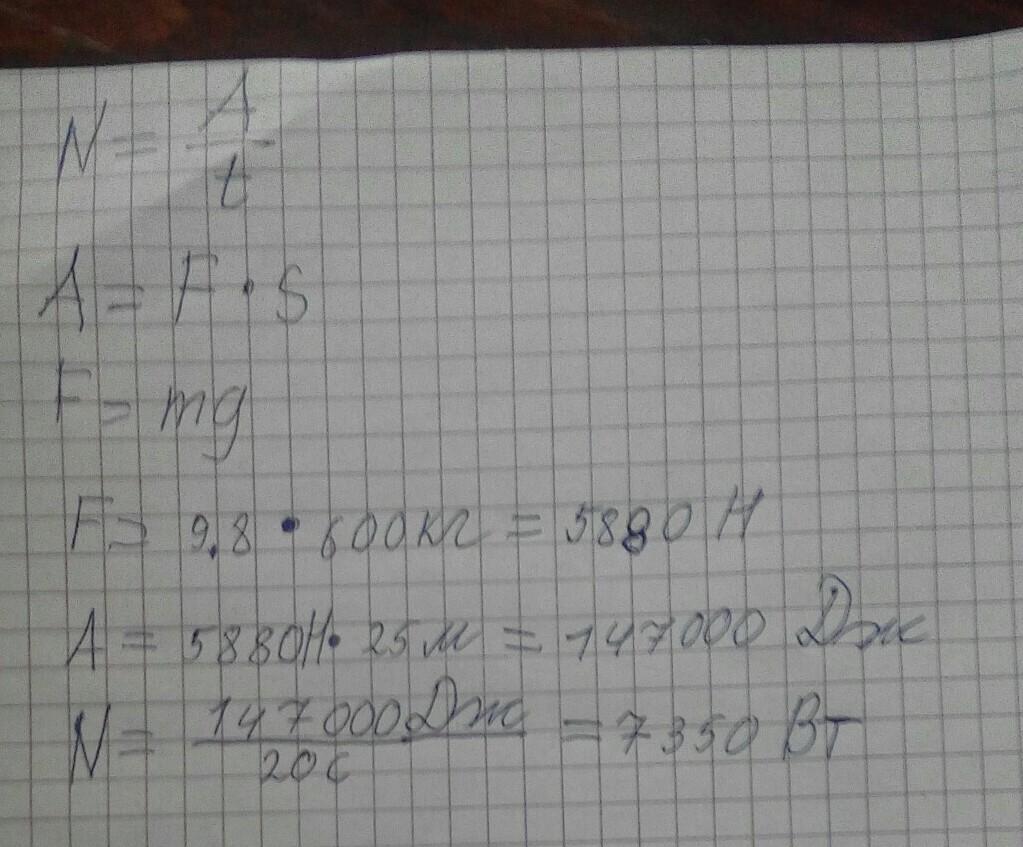 N = A/t
A = F · S
F = mg
F = 9,8 · 600кг = 5880 Н
A = 5880Н · 25м = 147000 Дж
N = 147000Дж/20с = 7350 Вт